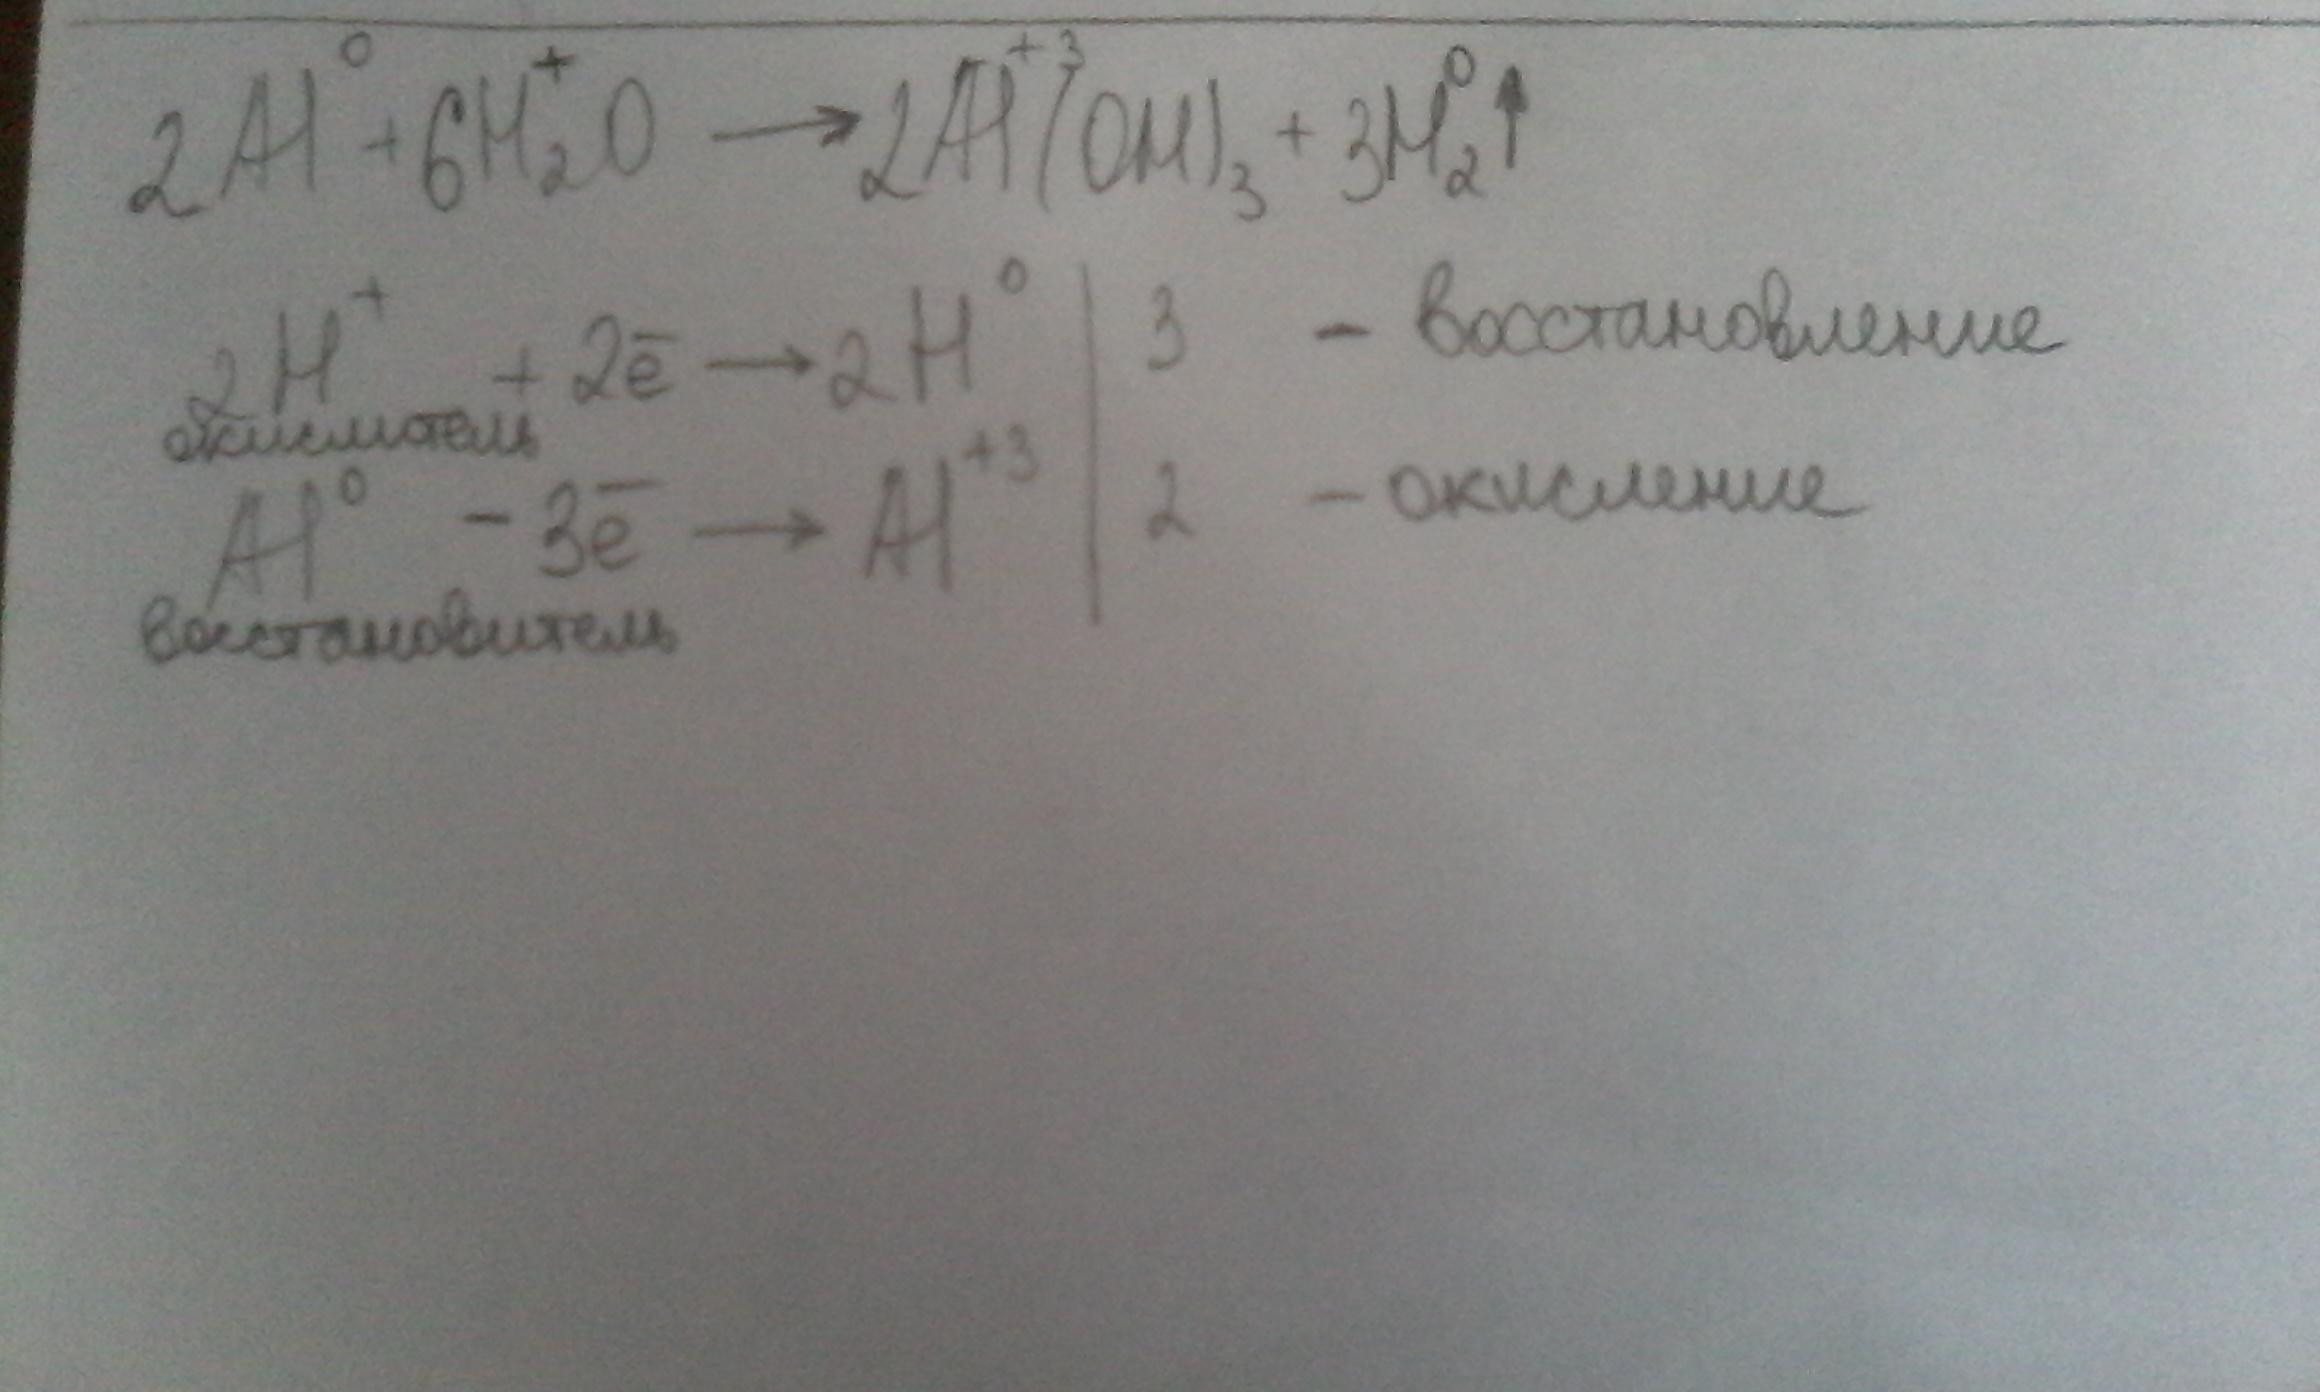 2Al⁰ + 6H⁺₂O → 2Al⁺³(OH)₃ + 3H⁰₂↑
2H⁺ + 2ē → 2H⁰ | 3 - восстановление
окислитель
Al⁰ - 3ē → Al⁺³ | 2 - окисление
восстановитель